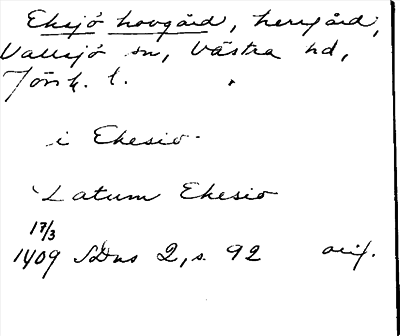 Eksjö hovgård, herrgård,
Vallsjö sn, Västra hd,
Jönk. l.
i Ekesio
Latum Ekesio
17/3
1409 SDns 2, s. 92 orig.